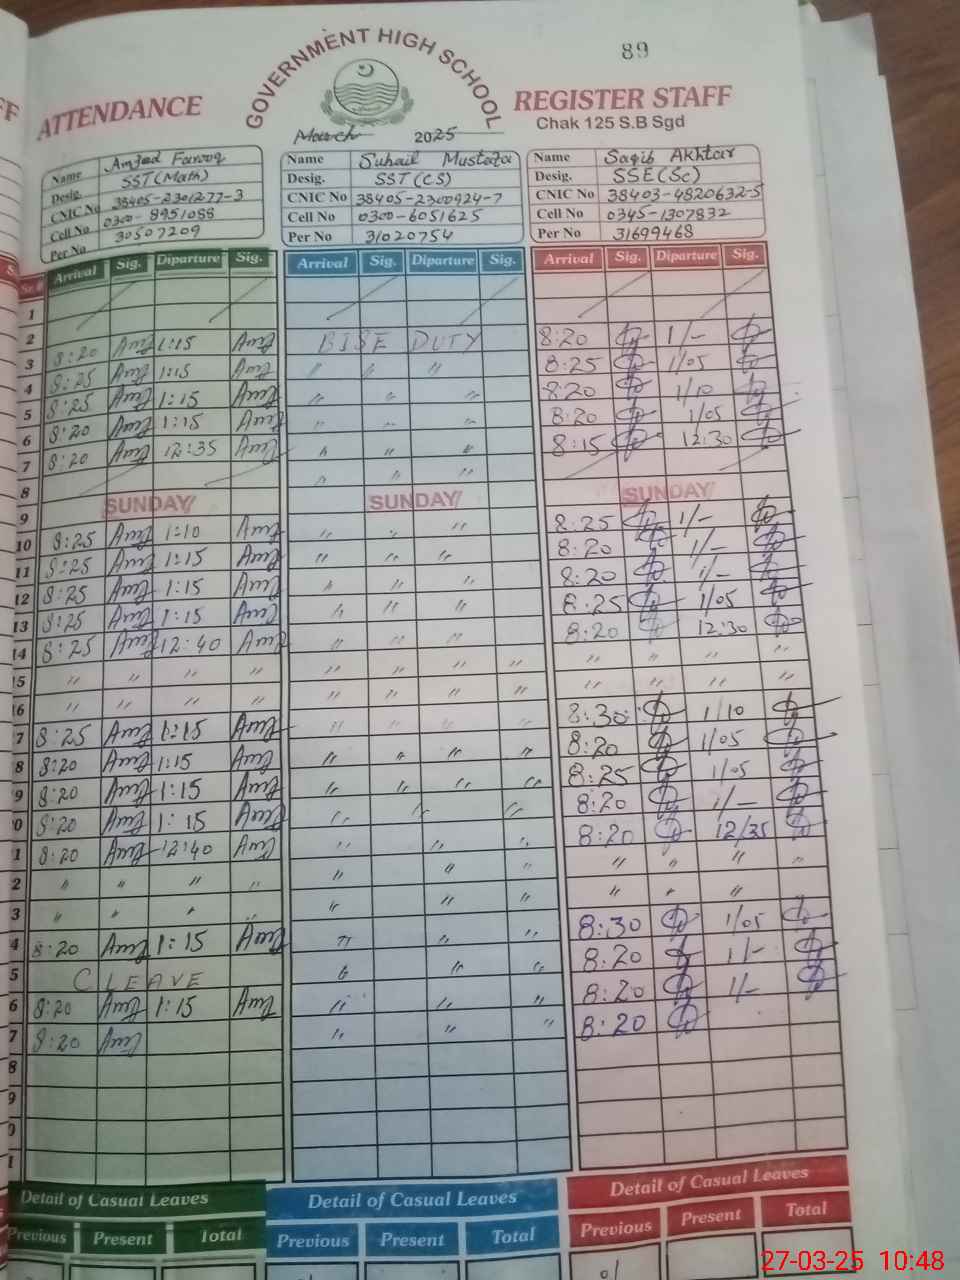 89
GOVERNMENT HIGH SCHOOL
ATTENDANCE REGISTER STAFF
Chak 125 S.B Sgd
March 2025
Name Amjad Farooq
Desig. SST (Math)
CNIC No 38405-2301277-3
Cell No 0300-8951088
Per No 30507209
Name Suhail Mustafa
Desig. SST (CS)
CNIC No 38405-2300924-7
Cell No 0300-6051625
Per No 31020754
Name Saqib Akhtar
Desig. SSE(Sc)
CNIC No 38403-4820632-5
Cell No 0345-1307832
Per No 31699468
Sr.# Arrival Sig. Diparture Sig. Arrival Sig. Diparture Sig. Arrival Sig. Diparture Sig.
1
2
3 8:20 1:15 BISE DUTY 8:20 1/-
4 8:25 1:15 " " " 8:25 1/05
5 8:25 1:15 " " " 8:20 1/10
6 8:20 1:15 " " " 8:20 1/05
7 8:20 12:35 " " " 8:15 12:30
8 " " "
9 SUNDAY SUNDAY SUNDAY
10 8:25 1:10 " " " 8:25 1/-
11 8:25 1:15 " " " 8:20 1/-
12 8:25 1:15 " " " 8:20 1/-
13 8:25 1:15 " " " 8:25 1/05
14 8:25 12:40 " " " 8:20 12:30
15 " " " " " " " " " " " "
16 " " " " " " " " " " " "
7 8:25 1:15 " " " " 8:30 1/10
8 8:20 1:15 " " " " 8:20 1/05
9 8:20 1:15 " " " " 8:25 1/05
0 8:20 1:15 " " " 8:20 1/-
1 8:20 12:40 " " " 8:20 12/35
2 " " " " " " " " " " "
3 " " " " " " " " " "
4 8:20 1:15 " " " 8:30 1/05
5 C LEAVE " " " 8:20 1/-
6 8:20 1:15 " " " 8:20 1/-
7 8:20 " " " 8:20
8
9
0
1
Detail of Casual Leaves Detail of Casual Leaves Detail of Casual Leaves
Previous Present Total Previous Present Total Previous Present Total
01
27-03-25 10:48